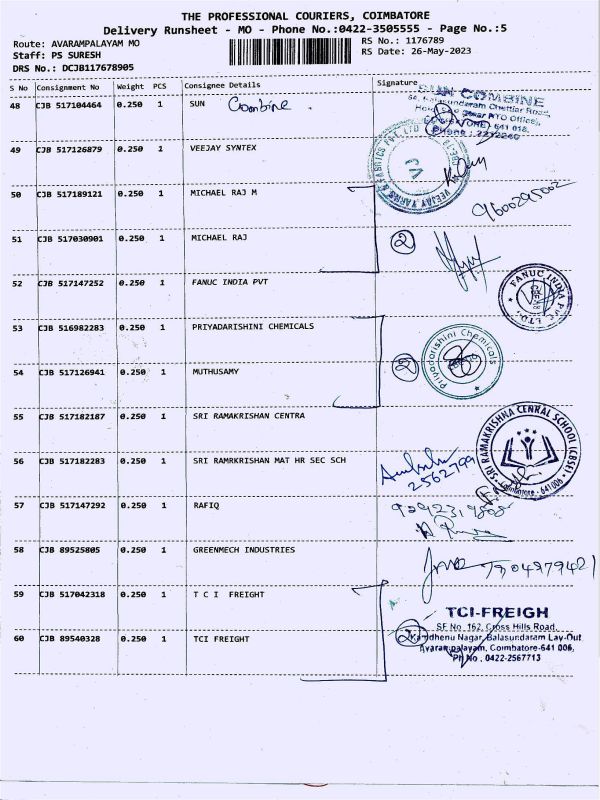 THE PROFESSIONAL COURIERS, COIMBATORE
Delivery Runsheet - MO - Phone No.:0422-3505555 - Page No.:5
Route: AVARAMPALAYAM MO
RS No.: 1176789
Staff: PS SURESH
RS Date: 26-May-2023
DRS No.: DCJB117678905
S No Consignment No Weight PCS Consignee Details Signature
48 CJB 517104464 0.250 1 SUN Combine
SUN COMBINE
641 018
49 CJB 517126879 0.250 1 VEEJAY SYNTEX
VEEJAY YARNS & FABRICS PVT LTD
50 CJB 517189121 0.250 1 MICHAEL RAJ M
9600295002
51 CJB 517030901 0.250 1 MICHAEL RAJ 2
52 CJB 517147252 0.250 1 FANUC INDIA PVT
FANUC INDIA PVT. LTD.
53 CJB 516982283 0.250 1 PRIYADARISHINI CHEMICALS
Priyadarishini Chemicals
54 CJB 517126941 0.250 1 MUTHUSAMY 2
55 CJB 517182187 0.250 1 SRI RAMAKRISHAN CENTRA
SRI RAMAKRISHNA CENRAL SCHOOL (CBSE)
Coimbatore - 641 006
56 CJB 517182283 0.250 1 SRI RAMRKRISHAN MAT HR SEC SCH
2562799
57 CJB 517147292 0.250 1 RAFIQ
58 CJB 89525805 0.250 1 GREENMECH INDUSTRIES
59 CJB 517042318 0.250 1 T C I FREIGHT
TCI-FREIGH
SF No. 162, Cross Hills Road,
60 CJB 89540328 0.250 1 TCI FREIGHT 2
Kamdhenu Nagar, Balasundaram Lay-Out
Avarampalayam, Coimbatore-641 006,
Ph No. 0422-2567713